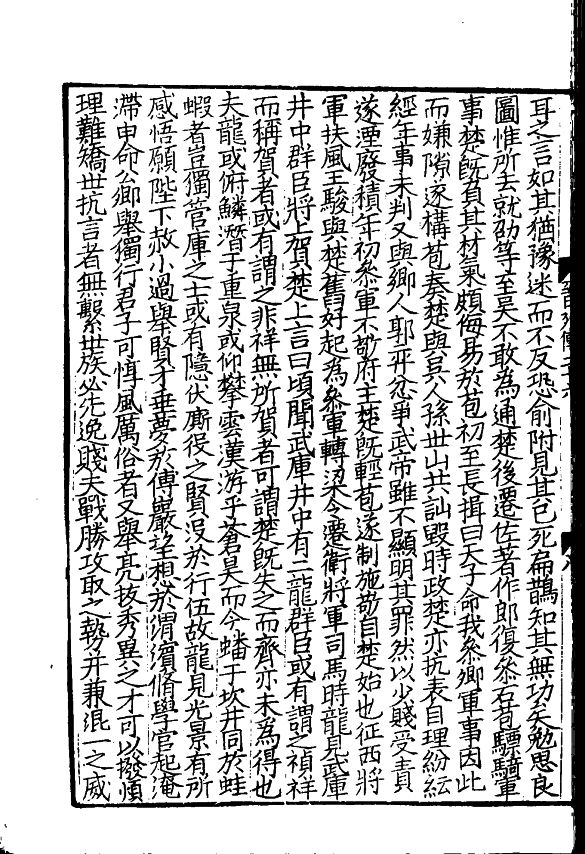 耳之言如其猶豫迷而不反恐俞附見其已死扁鵲知其無功矣勉思良
圖惟所去就劭等至吳不敢為通楚後遷佐著作郎復參石苞驃騎軍
事楚旣負其材氣頗侮易於苞初至長揖曰天子命我參卿軍事因此
而嫌隙遂構苞奏楚與吳人孫世山共訕毀時政楚亦抗表自理紛紜
經年事未判又與鄉人郭奕忿爭武帝雖不顯明其罪然以少賤受責
遂湮廢積年初參軍不敬府主楚旣輕苞遂制施敬自楚始也征西將
軍扶風王駿與楚舊好起為參軍轉梁令遷衛將軍司馬時龍見武庫
井中群臣將上賀楚上言曰頃聞武庫井中有二龍群臣或有謂之禎祥
而稱賀者或有謂之非祥無所賀者可謂楚旣失之而齊亦未為得也
夫龍或俯鱗潛于重泉或仰攀雲漢游乎蒼昊而今蟠于坎井同於蛙
蝦者豈獨管庫之士或有隱伏廝役之賢沒於行伍故龍見光景有所
感悟願陛下赦小過舉賢才垂夢於傅巖望想於渭濱脩學官起淹
滯申命公卿舉獨行君子可惇風厲俗者又舉亮拔秀異之才可以撥煩
理難矯世抗言者無繫世族必先逸賤夫戰勝攻取之勢并兼混一之威